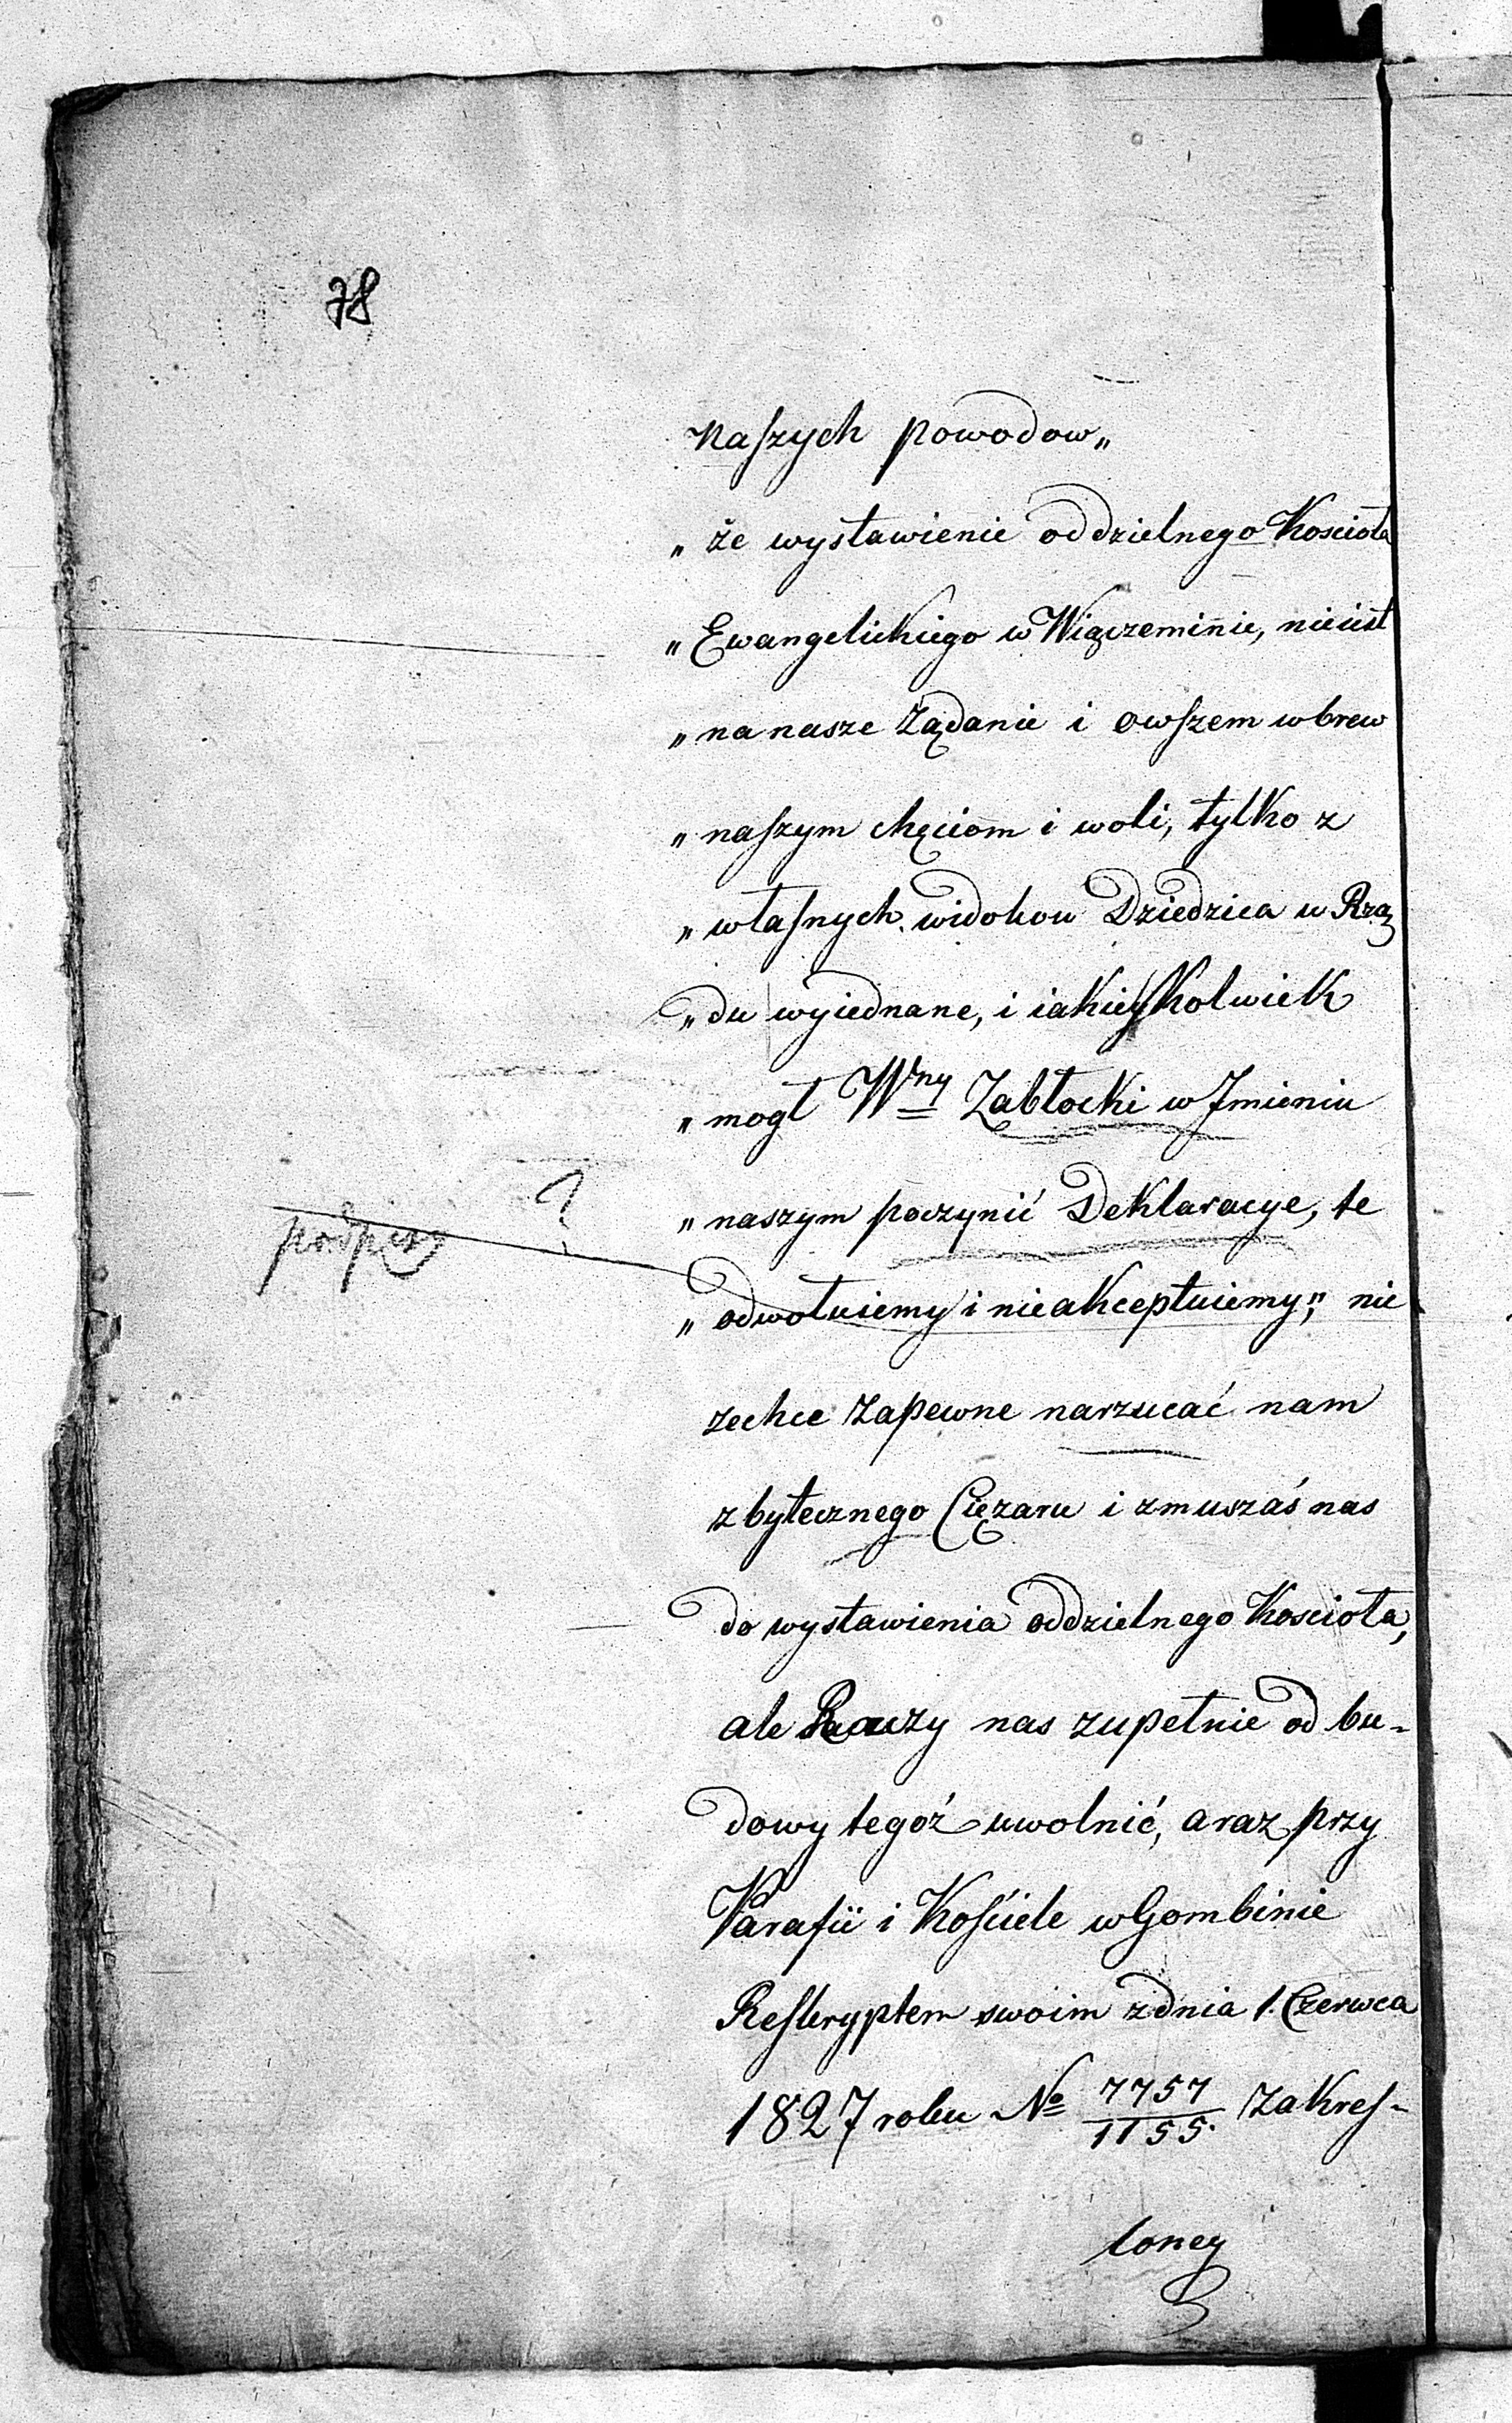 78
naszych powodow„
„ że wystawienie oddzielnego Koscioła
„ Ewangelickiego w Wiączeminie, nieiest
„ na nasze Żądanie i owszem wbrew
„ naszym chęciom i woli, tylko z
„ własnych widokow Dziedzica u Rzą
„ du wyiednane, i iakieykolwiek
„ mogł Wny Zabłocki w Jmieniu
„ naszym poczynić Deklaracye, te
?
„ odwołuiemy i nieakceptuiemy,„ nie
zechce zapewne narzucać nam
zbytecznego Ciężaru i zmuszaś nas
do wystawienia oddzielnego Kosciota,
ale Raczy nas zupełnie od bu-
dowy tegoż uwolnić, araz przy
Parafii i Kościele w Gombinie
Reskryptem swoim z dnia 1. Czerwca
1827 roku No 7757/1155. Zakres-
loney